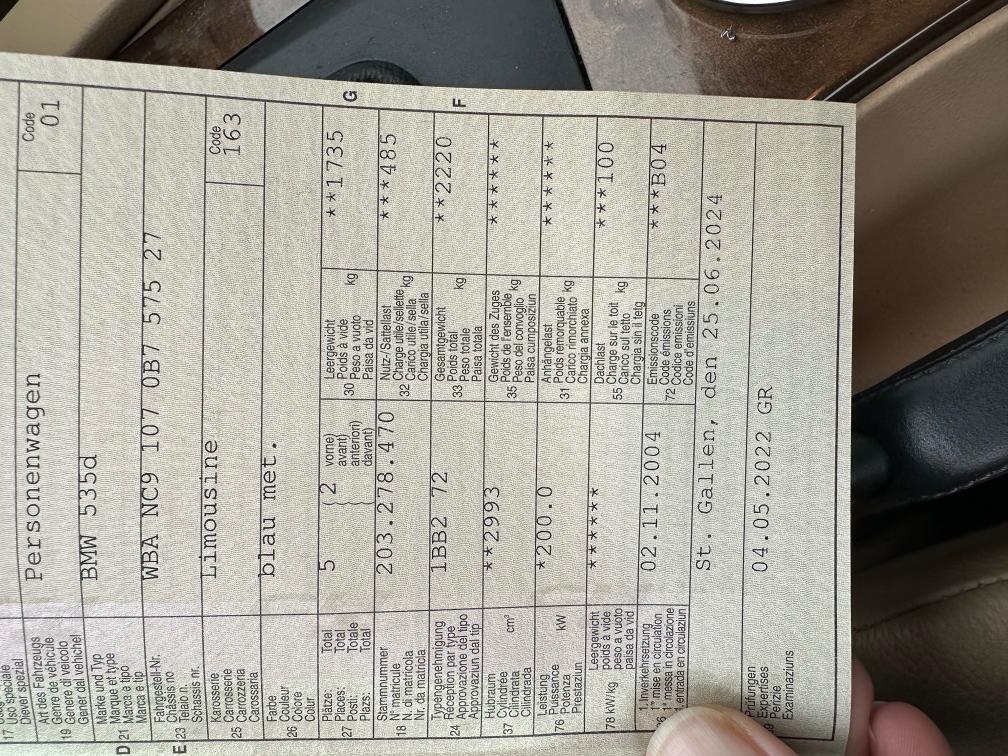 17 Uso speciale
Diever spezial
Art des Fahrzeugs
Genre de véhicule
19 Genere di veicolo
Gener dal vehichel
Personenwagen
Code
01
D
Marke und Typ
Marque et type
21 Marca e tipo
Marca e tip
BMW 535d
E
Fahrgestell-Nr.
Châssis no
23 Telaio n.
Schassis nr.
WBA NC9 107 0B7 575 27
Karosserie
Carrosserie
25 Carrozzeria
Carossaria
Limousine
Code
163
Farbe
Couleur
26 Colore
Colur
blau met.
Plätze: Total
Places: Total
27 Posti: Totale
Plazs: Total
5
2
vorne)
avant)
anteriori)
davant)
Leergewicht
Poids à vide
30 Peso a vuoto kg
Paisa da vid
**1735
G
Stammnummer
N° matricule
18 N. di matricola
Nr. da matricla
203.278.470
Nutz-/Sattellast
Charge utile/sellette
32 Carico utile/sella kg
Chargia utila/sella
***485
Typengenehmigung
Réception par type
24 Approvazione del tipo
Approvaziun dal tip
1BB2 72
Gesamtgewicht
Poids total
33 Peso totale kg
Paisa totala
**2220
F
Hubraum
Cylindrée
37 Cilindrata cm³
Cilindrada
**2993
Gewicht des Zuges
Poids de l'ensemble
35 Peso del convoglio kg
Paisa cumposiziun
******
Leistung
Puissance
76 Potenza kW
Prestaziun
*200.0
Anhängelast
Poids remorquable
31 Carico rimorchiato kg
Chargia annexa
******
Leergewicht
poids à vide
78 kW/kg peso a vuoto
paisa da vid
******
Dachlast
Charge sur le toit
55 Carico sul tetto kg
Chargia sin il tetg
***100
1. Inverkehrsetzung
1re mise en circulation
36 1a messa in circolazione
1. entrada en circulaziun
02.11.2004
Emissionscode
Code émissions
72 Codice emissioni
Code d'emissiuns
***B04
St. Gallen, den 25.06.2024
Prüfungen
Expertises
Perizie
Examinaziuns
04.05.2022 GR